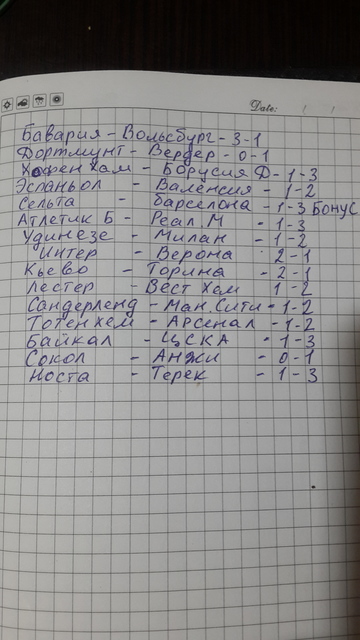 Date:
Бавария - Вольсбург - 3-1
Дортмунт - Вердер - 0-1
Хофен Хам - Борусия Ф - 1-3
Эспаньол - Валенсия - 1-2
Сельта - барселона - 1-3 БОНУС
Атлетик Б - Реал. М - 1-3
Удинезе - Милан - 1-2
Интер - Верона 2-1
Кьево - Торина - 2-1
Лестер - Вест Хам 1-2
Сандерленд - Ман. Сити - 1-2
Тотенхем - Арсенал - 1-2
Байкал - ЦСКА - 1-3
Сокол - Анжи - 0-1
Носта - Терек - 1-3